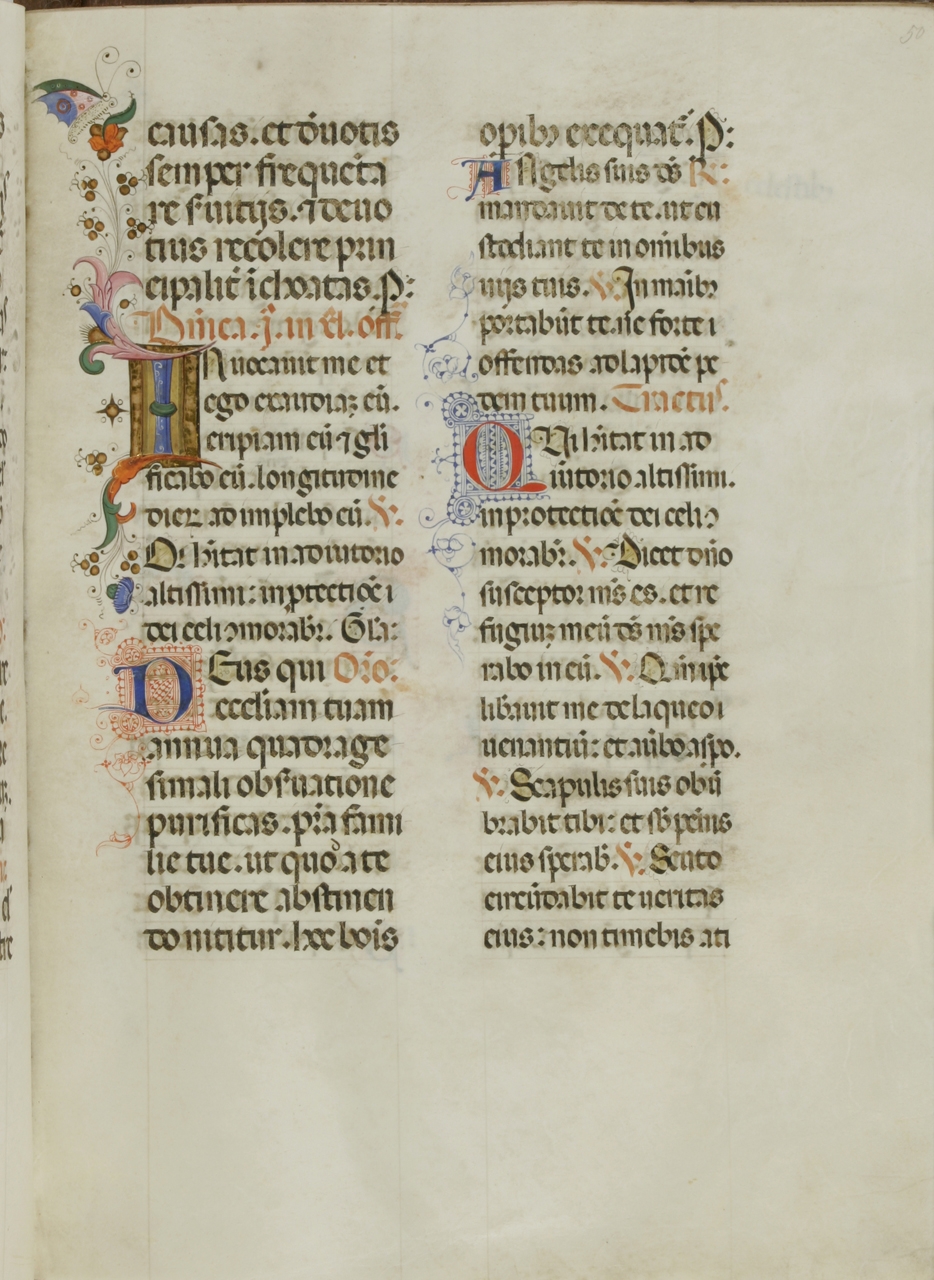 50
causas. et deuotis
semper freq̄uēta
re ẜuitijs. ⁊ deuo
tius recolere prin
cipalit̄ īchoatas. P:
Dn̄ica. j. in xl. off̄.
INuocauit me et
ego exaudiaꝫ eū.
eripiam eū ⁊ gl̄i
ficabo eū. longitudine
dierꝫ adimplebo eū. V.
Qi h̄itat in adiutorio
altissimi: in ꝓtectiōe i
dei celi ꝯmorabr̄. Gl̄a:
DEus qui Or̄o:
eccl̄iam tuam
annua quadrage
simali obẜuatione
purificas. pr̄a fami
lie tue. ut quod a te
obtinere abstinen
do nititur. hoc bōis
opibꝰ exequat̄. P:
ANgelis suis ds̄ R:
mandauit de te. ut cu
stodiant te in omībus
uijs tuis. V. In māibꝰ
portabūt te. ne forte i
offendas ad lapidē pe
dem tuum. Tractus.
QVi h̄itat in ad
iūtorio altissimi.
in protectiōe dei celi ꝯ
morabr̄. V. Dicet dn̄o
susceptor mīs es. et re
fugiuꝫ meū ds̄ mīs spe
rabo in eū. V. Qm̄ ip̄e
lib̄auit me de laqueo i
uenantiū: et a ūbo asp̄o.
V. Scapulis suis obū
brabit tibi: et sb̄ pēnis
eius sperab̄. V. Scuto
circūdabit te ueritas
eius: non timebis a ti